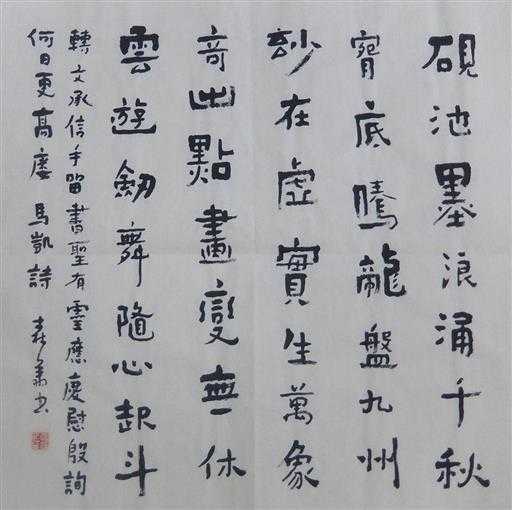 硯池墨浪涌千秋
腎底騰龍盤九州
妙在虛實生萬象
奇出點畫變無休
雲遊劒舞隨心起斗
轉文承信手留書聖有靈應慶慰殷詢
何日更高廔馬凱詩 春業书